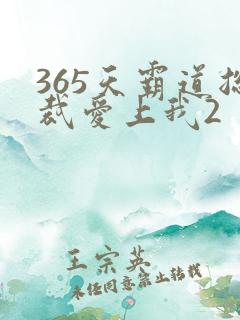 365天霸道总
裁爱上我2
王宗英
未经同意禁止转载